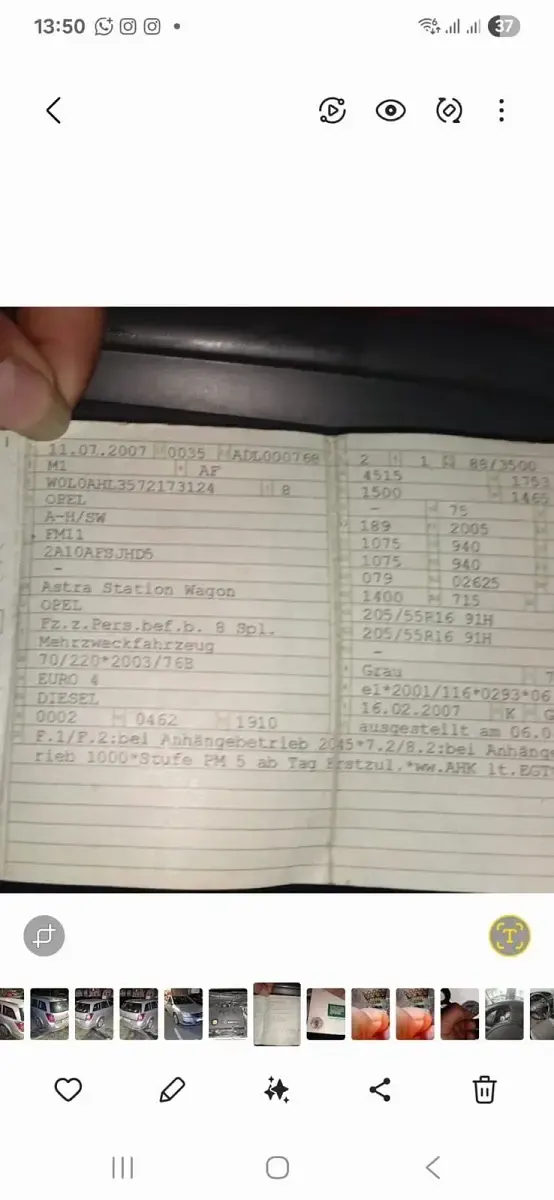 13:50
37
11.07.2007 0035 ADL000768
M1 AF
W0L0AHL3572173124 8
OPEL
A-H/SW
FMI1
2A10AFSJHD5
-
Astra Station Wagon
OPEL
Fz.z.Pers.bef.b. 8 Spl.
Mehrzweckfahrzeug
70/220*2003/76B
EURO 4
DIESEL
0002 0462 1910
F.1/F.2:bei Anhängebetrieb 2045*7.2/8.2:bei Anhänge
rieb 1000*Stufe PM 5 ab Tag Erstzul.*ww.AHK lt.EGT
2 1 88/3500
4515 1753
1500 1465
- 75
189 2005
1075 940
1075 940
079 02625
1400 715
205/55R16 91H
205/55R16 91H
-
Grau 7
e1*2001/116*0293*06
16.02.2007 K G
ausgestellt am 06.0
T